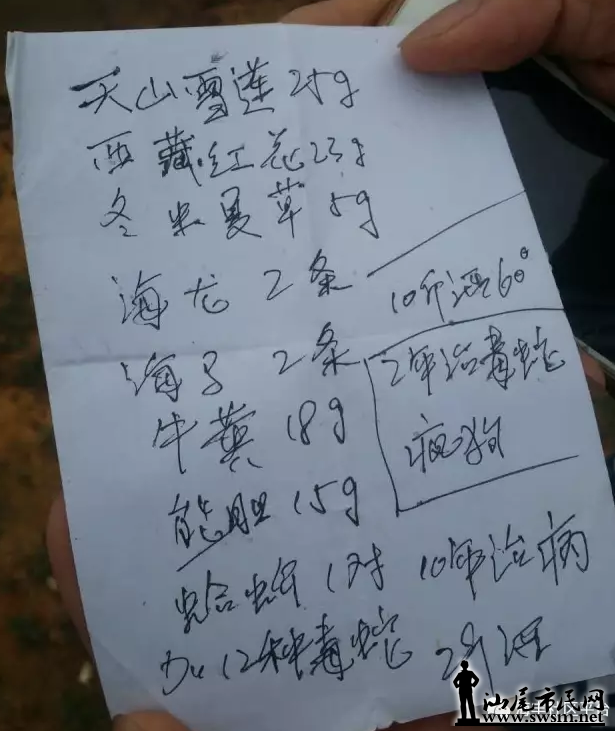 天山雪莲 25g
西藏红花 25g
冬虫夏草 5g
海龙 2条
10斤酒60°
海马 2条
2年治毒蛇
疯狗
牛黄 18g
能胆 15g
蛤蚧 1对 10年治病
加12种毒蛇 2斤酒
汕尾市民网
www.swsm.net